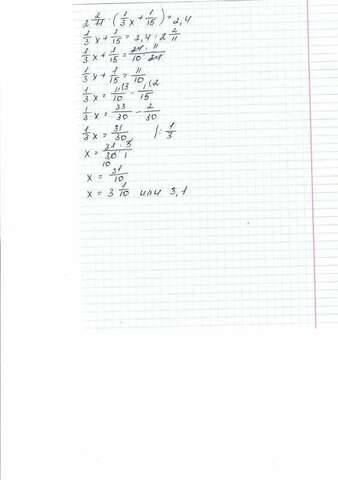 2 2/11 · (1/3 x + 1/15) = 2,4
1/3 x + 1/15 = 2,4 : 2 2/11
1/3 x + 1/15 = 24 · 11 / 10 · 24
1/3 x + 1/15 = 11/10
1/3 x = 11/10 (3 - 1/15 (2
1/3 x = 33/30 - 2/30
1/3 x = 31/30 |: 1/3
x = 31 · 3 / 30 · 1
10
x = 31/10
x = 3 1/10 или 3,1